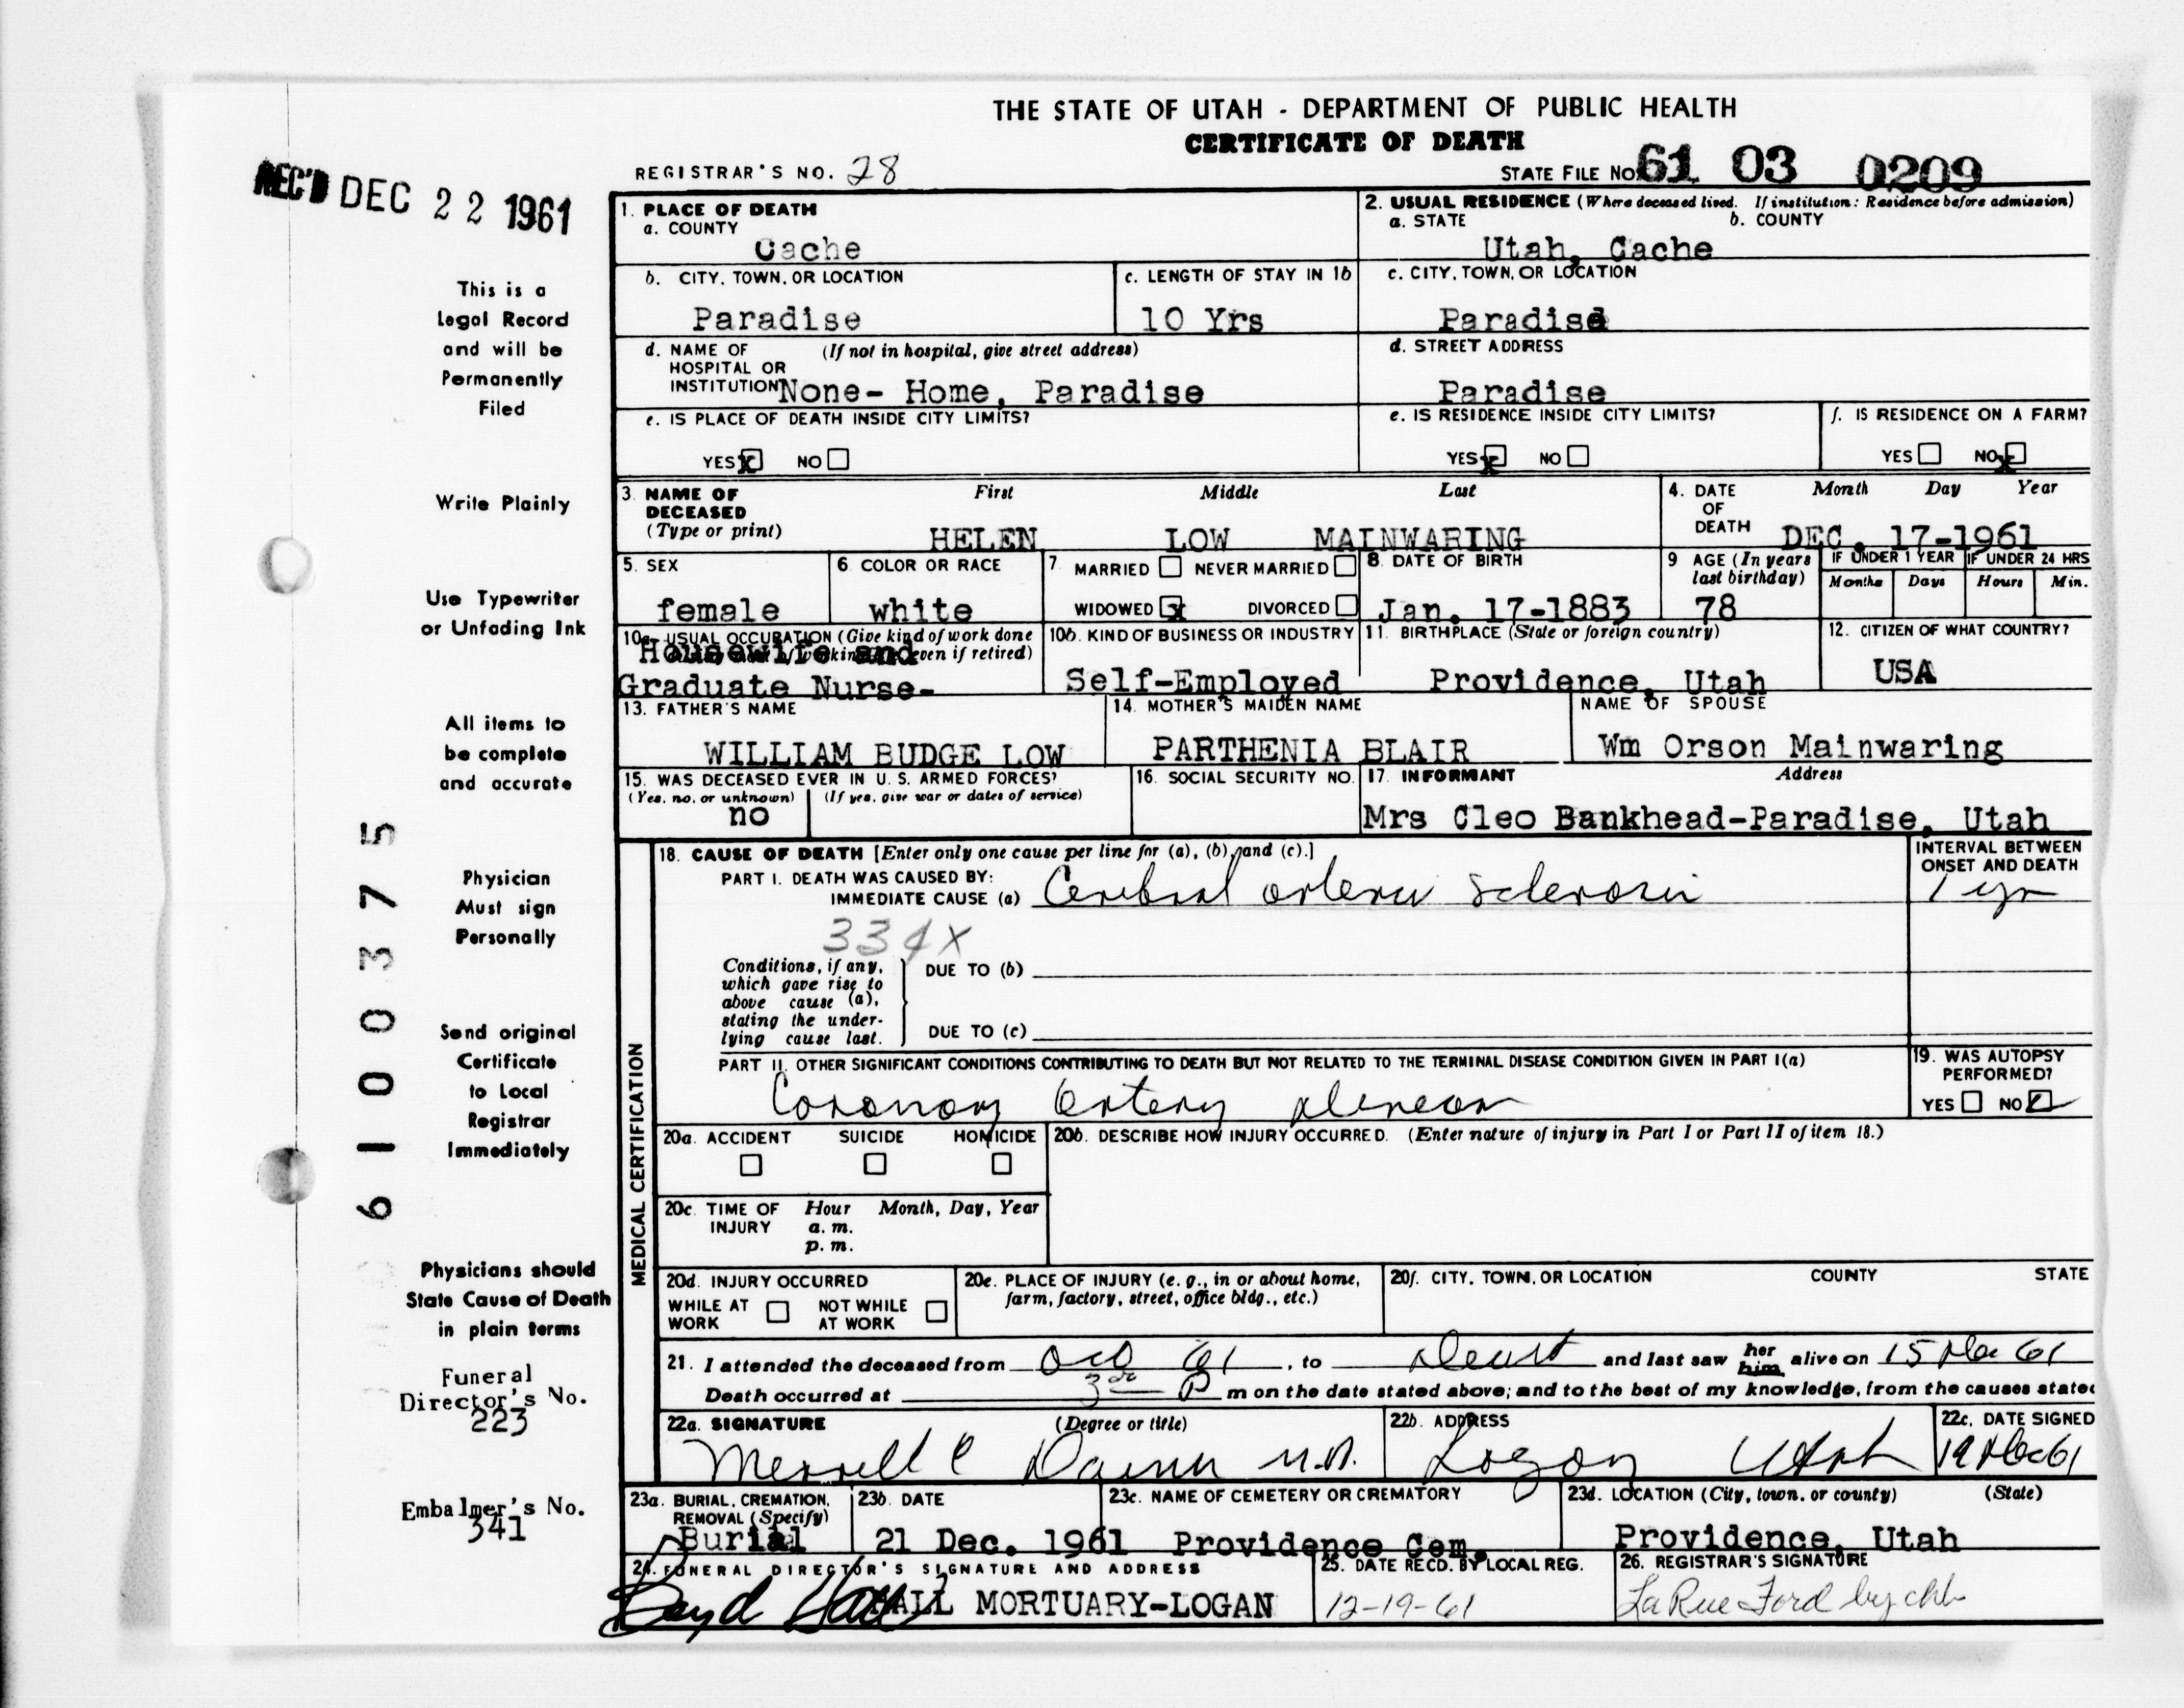 THE STATE OF UTAH - DEPARTMENT OF PUBLIC HEALTH
CERTIFICATE OF DEATH
REGISTRAR'S NO. 28
STATE FILE NO. 61 03 0209
REC'D DEC 22 1961
This is a
Legal Record
and will be
Permanently
Filed
Write Plainly
Use Typewriter
or Unfading Ink
All items to
be complete
and accurate
Physician
Must sign
Personally
Send original
Certificate
to Local
Registrar
Immediately
Physicians should
State Cause of Death
in plain terms
Funeral
Director's No.
223
Embalmer's No.
341
6100375
1. PLACE OF DEATH
a. COUNTY
Cache
2. USUAL RESIDENCE (Where deceased lived. If institution: Residence before admission)
a. STATE b. COUNTY
Utah, Cache
b. CITY, TOWN, OR LOCATION
Paradise
c. LENGTH OF STAY IN 1b
10 Yrs
c. CITY, TOWN, OR LOCATION
Paradise
d. NAME OF (If not in hospital, give street address)
HOSPITAL OR
INSTITUTION None- Home, Paradise
d. STREET ADDRESS
Paradise
e. IS PLACE OF DEATH INSIDE CITY LIMITS?
YES x NO
e. IS RESIDENCE INSIDE CITY LIMITS?
YES x NO
f. IS RESIDENCE ON A FARM?
YES NO x
3. NAME OF DECEASED (Type or print)
First Middle Last
HELEN LOW MAINWARING
4. DATE OF DEATH
Month Day Year
DEC. 17-1961
5. SEX
female
6. COLOR OR RACE
white
7. MARRIED NEVER MARRIED
WIDOWED x DIVORCED
8. DATE OF BIRTH
Jan. 17-1883
9 AGE (In years last birthday)
78
IF UNDER 1 YEAR IF UNDER 24 HRS
Months Days Hours Min.
10a. USUAL OCCUPATION (Give kind of work done
even if retired)
Housewife and
Graduate Nurse-
10b. KIND OF BUSINESS OR INDUSTRY
Self-Employed
11. BIRTHPLACE (State or foreign country)
Providence, Utah
12. CITIZEN OF WHAT COUNTRY?
USA
13. FATHER'S NAME
WILLIAM BUDGE LOW
14. MOTHER'S MAIDEN NAME
PARTHENIA BLAIR
NAME OF SPOUSE
Wm Orson Mainwaring
15. WAS DECEASED EVER IN U. S. ARMED FORCES?
(Yes, no, or unknown) (If yes, give war or dates of service)
no
16. SOCIAL SECURITY NO.
17. INFORMANT Address
Mrs Cleo Bankhead-Paradise, Utah
MEDICAL CERTIFICATION
18. CAUSE OF DEATH [Enter only one cause per line for (a), (b), and (c).]
PART I. DEATH WAS CAUSED BY:
IMMEDIATE CAUSE (a) Cerebral arterio sclerosis
INTERVAL BETWEEN
ONSET AND DEATH
1 yr
334X
Conditions, if any,
which gave rise to
above cause (a),
stating the under-
lying cause last.
DUE TO (b)
DUE TO (c)
PART II. OTHER SIGNIFICANT CONDITIONS CONTRIBUTING TO DEATH BUT NOT RELATED TO THE TERMINAL DISEASE CONDITION GIVEN IN PART I(a)
Coronary artery disease
19. WAS AUTOPSY
PERFORMED?
YES NO
20a. ACCIDENT SUICIDE HOMICIDE
20b. DESCRIBE HOW INJURY OCCURRED. (Enter nature of injury in Part I or Part II of item 18.)
20c. TIME OF INJURY Hour Month, Day, Year
a. m.
p. m.
20d. INJURY OCCURRED
WHILE AT WORK NOT WHILE AT WORK
20e. PLACE OF INJURY (e. g., in or about home,
farm, factory, street, office bldg., etc.)
20f. CITY, TOWN, OR LOCATION COUNTY STATE
21. I attended the deceased from Oct 61, to Death and last saw her him alive on 15 Dec 61
Death occurred at 3 00 P m on the date stated above; and to the best of my knowledge, from the causes stated
22a. SIGNATURE (Degree or title)
Merrill C Daines M.D.
22b. ADDRESS
Logan Utah
22c. DATE SIGNED
19 Dec 61
23a. BURIAL, CREMATION,
REMOVAL (Specify)
Burial
23b. DATE
21 Dec. 1961
23c. NAME OF CEMETERY OR CREMATORY
Providence Cem.
23d. LOCATION (City, town, or county) (State)
Providence, Utah
24. FUNERAL DIRECTOR'S SIGNATURE AND ADDRESS
Boyd Hall HALL MORTUARY-LOGAN
25. DATE RECD. BY LOCAL REG.
12-19-61
26. REGISTRAR'S SIGNATURE
LaRue Ford by chb